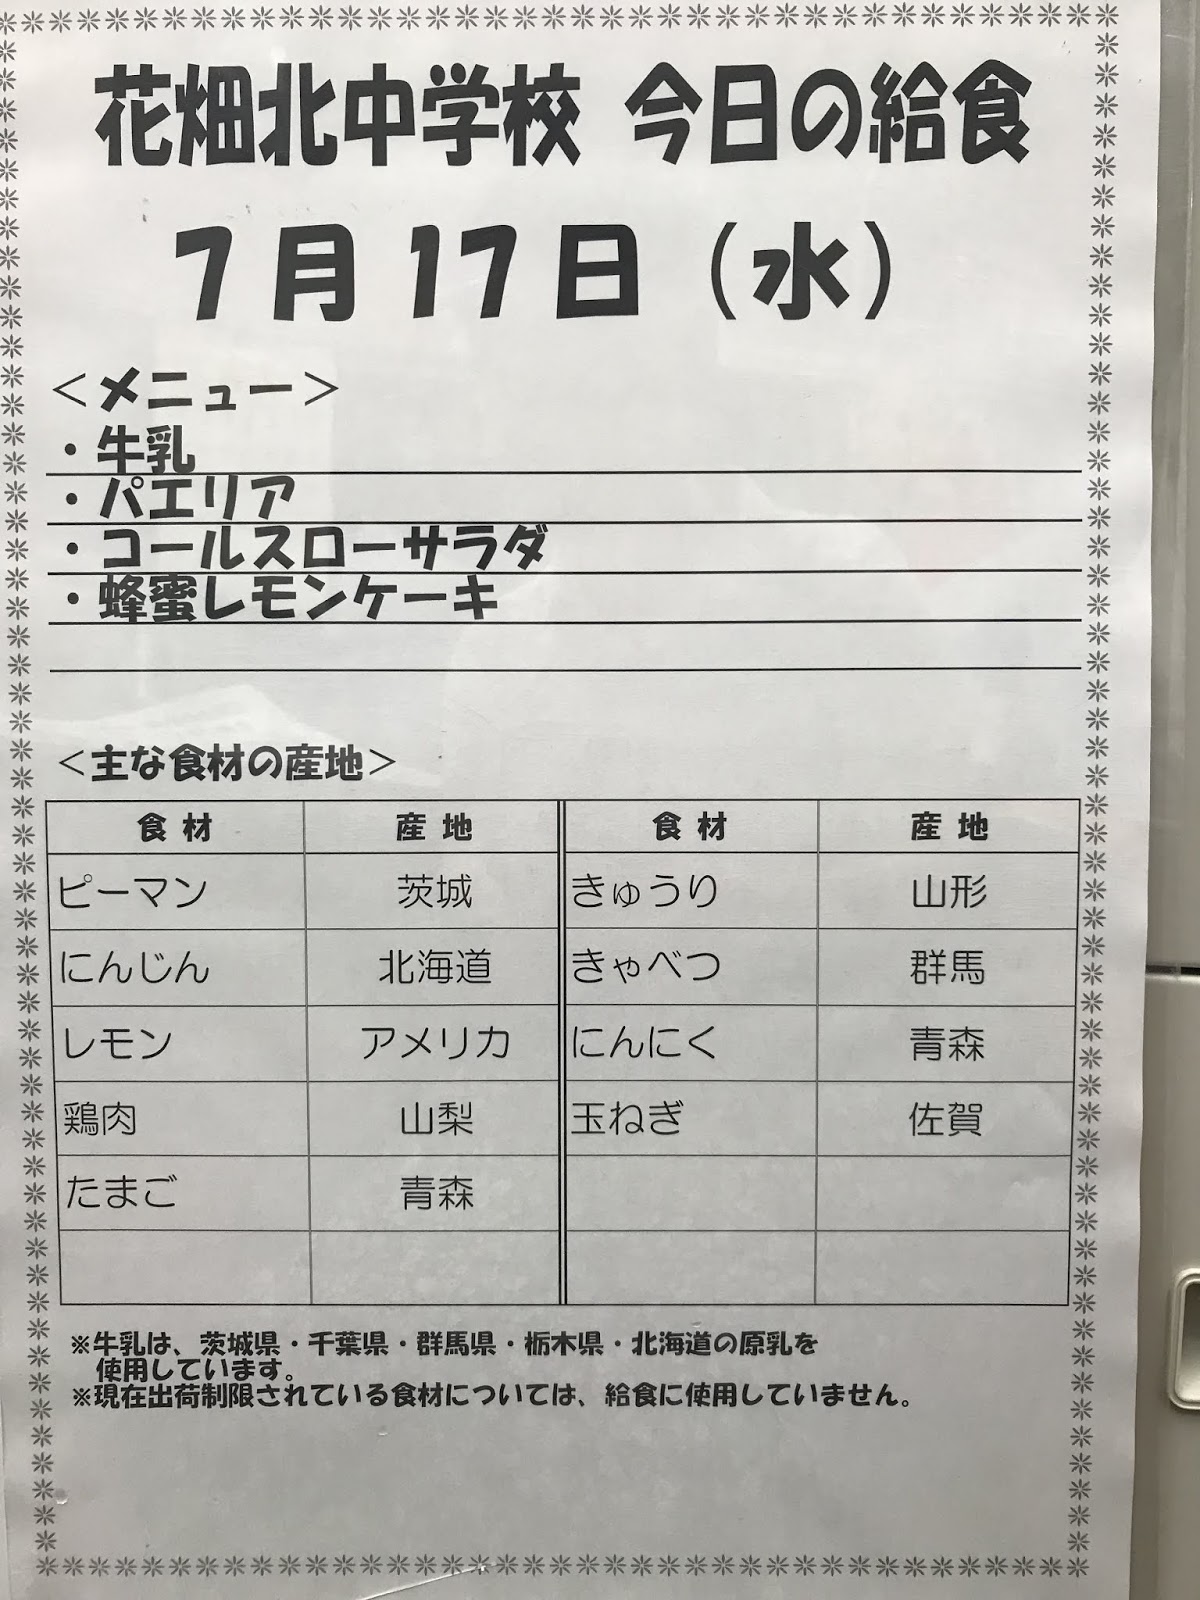 花畑北中学校 今日の給食
7月17日（水）
＜メニュー＞
・牛乳
・パエリア
・コールスローサラダ
・蜂蜜レモンケーキ
＜主な食材の産地＞
食材 産地 食材 産地
ピーマン 茨城 きゅうり 山形
にんじん 北海道 きゃべつ 群馬
レモン アメリカ にんにく 青森
鶏肉 山梨 玉ねぎ 佐賀
たまご 青森
※牛乳は、茨城県・千葉県・群馬県・栃木県・北海道の原乳を
使用しています。
※現在出荷制限されている食材については、給食に使用していません。